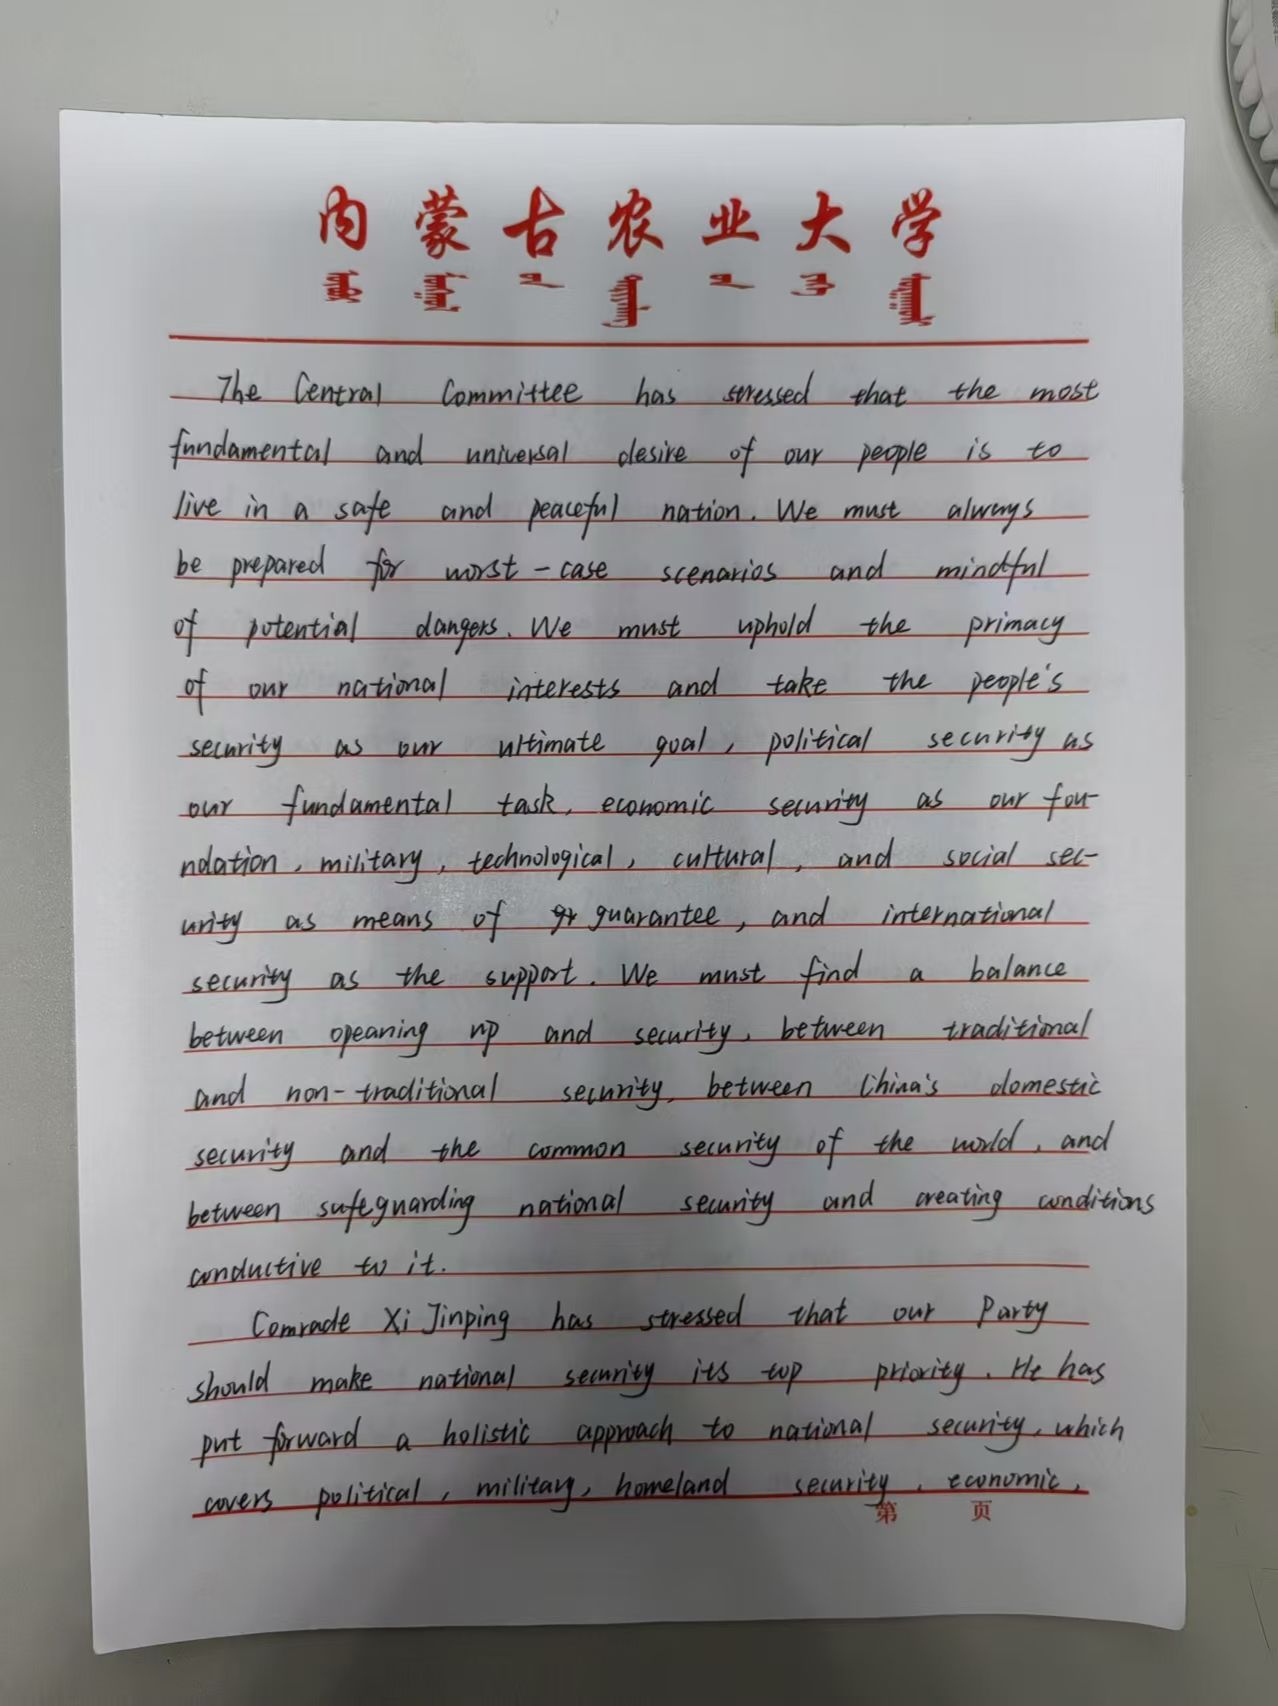 内蒙古农业大学
The Central Committee has stressed that the most
fundamental and universal desire of our people is to
live in a safe and peaceful nation. We must always
be prepared for worst-case scenarios and mindful
of potential dangers. We must uphold the primacy
of our national interests and take the people's
security as our ultimate goal, political security as
our fundamental task, economic security as our fou-
ndation, military, technological, cultural, and social sec-
urity as means of guarantee, and international
security as the support. We must find a balance
between opeaning up and security, between traditional
and non-traditional security, between China's domestic
security and the common security of the world, and
between safeguarding national security and creating conditions
conductive to it.
Comrade Xi Jinping has stressed that our Party
should make national security its top priority. He has
put forward a holistic approach to national security, which
covers political, military, homeland security, economic,
第 页